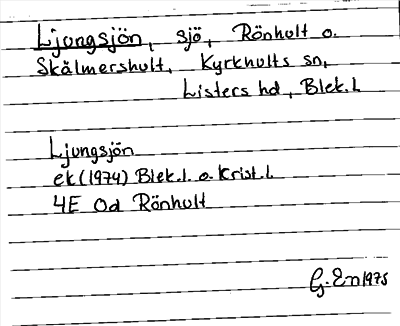 Ljungsjön, sjö, Rönhult o.
Skålmershult, Kyrkhults sn,
Listers hd, Blek.l
Ljungsjön
ek (1974) Blek.l. o. Krist.l.
4E Od Rönhult
G. En 1975